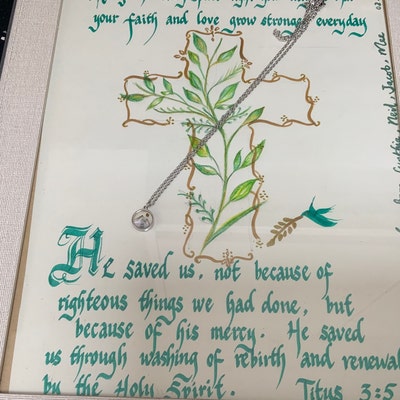 your faith and love grow stronger everyday
He saved us, not because of
righteous things we had done, but
because of his mercy. He saved
us through washing of rebirth and renewal
by the Holy Spirit. Titus 3:5
Neil, Jacob, Mee